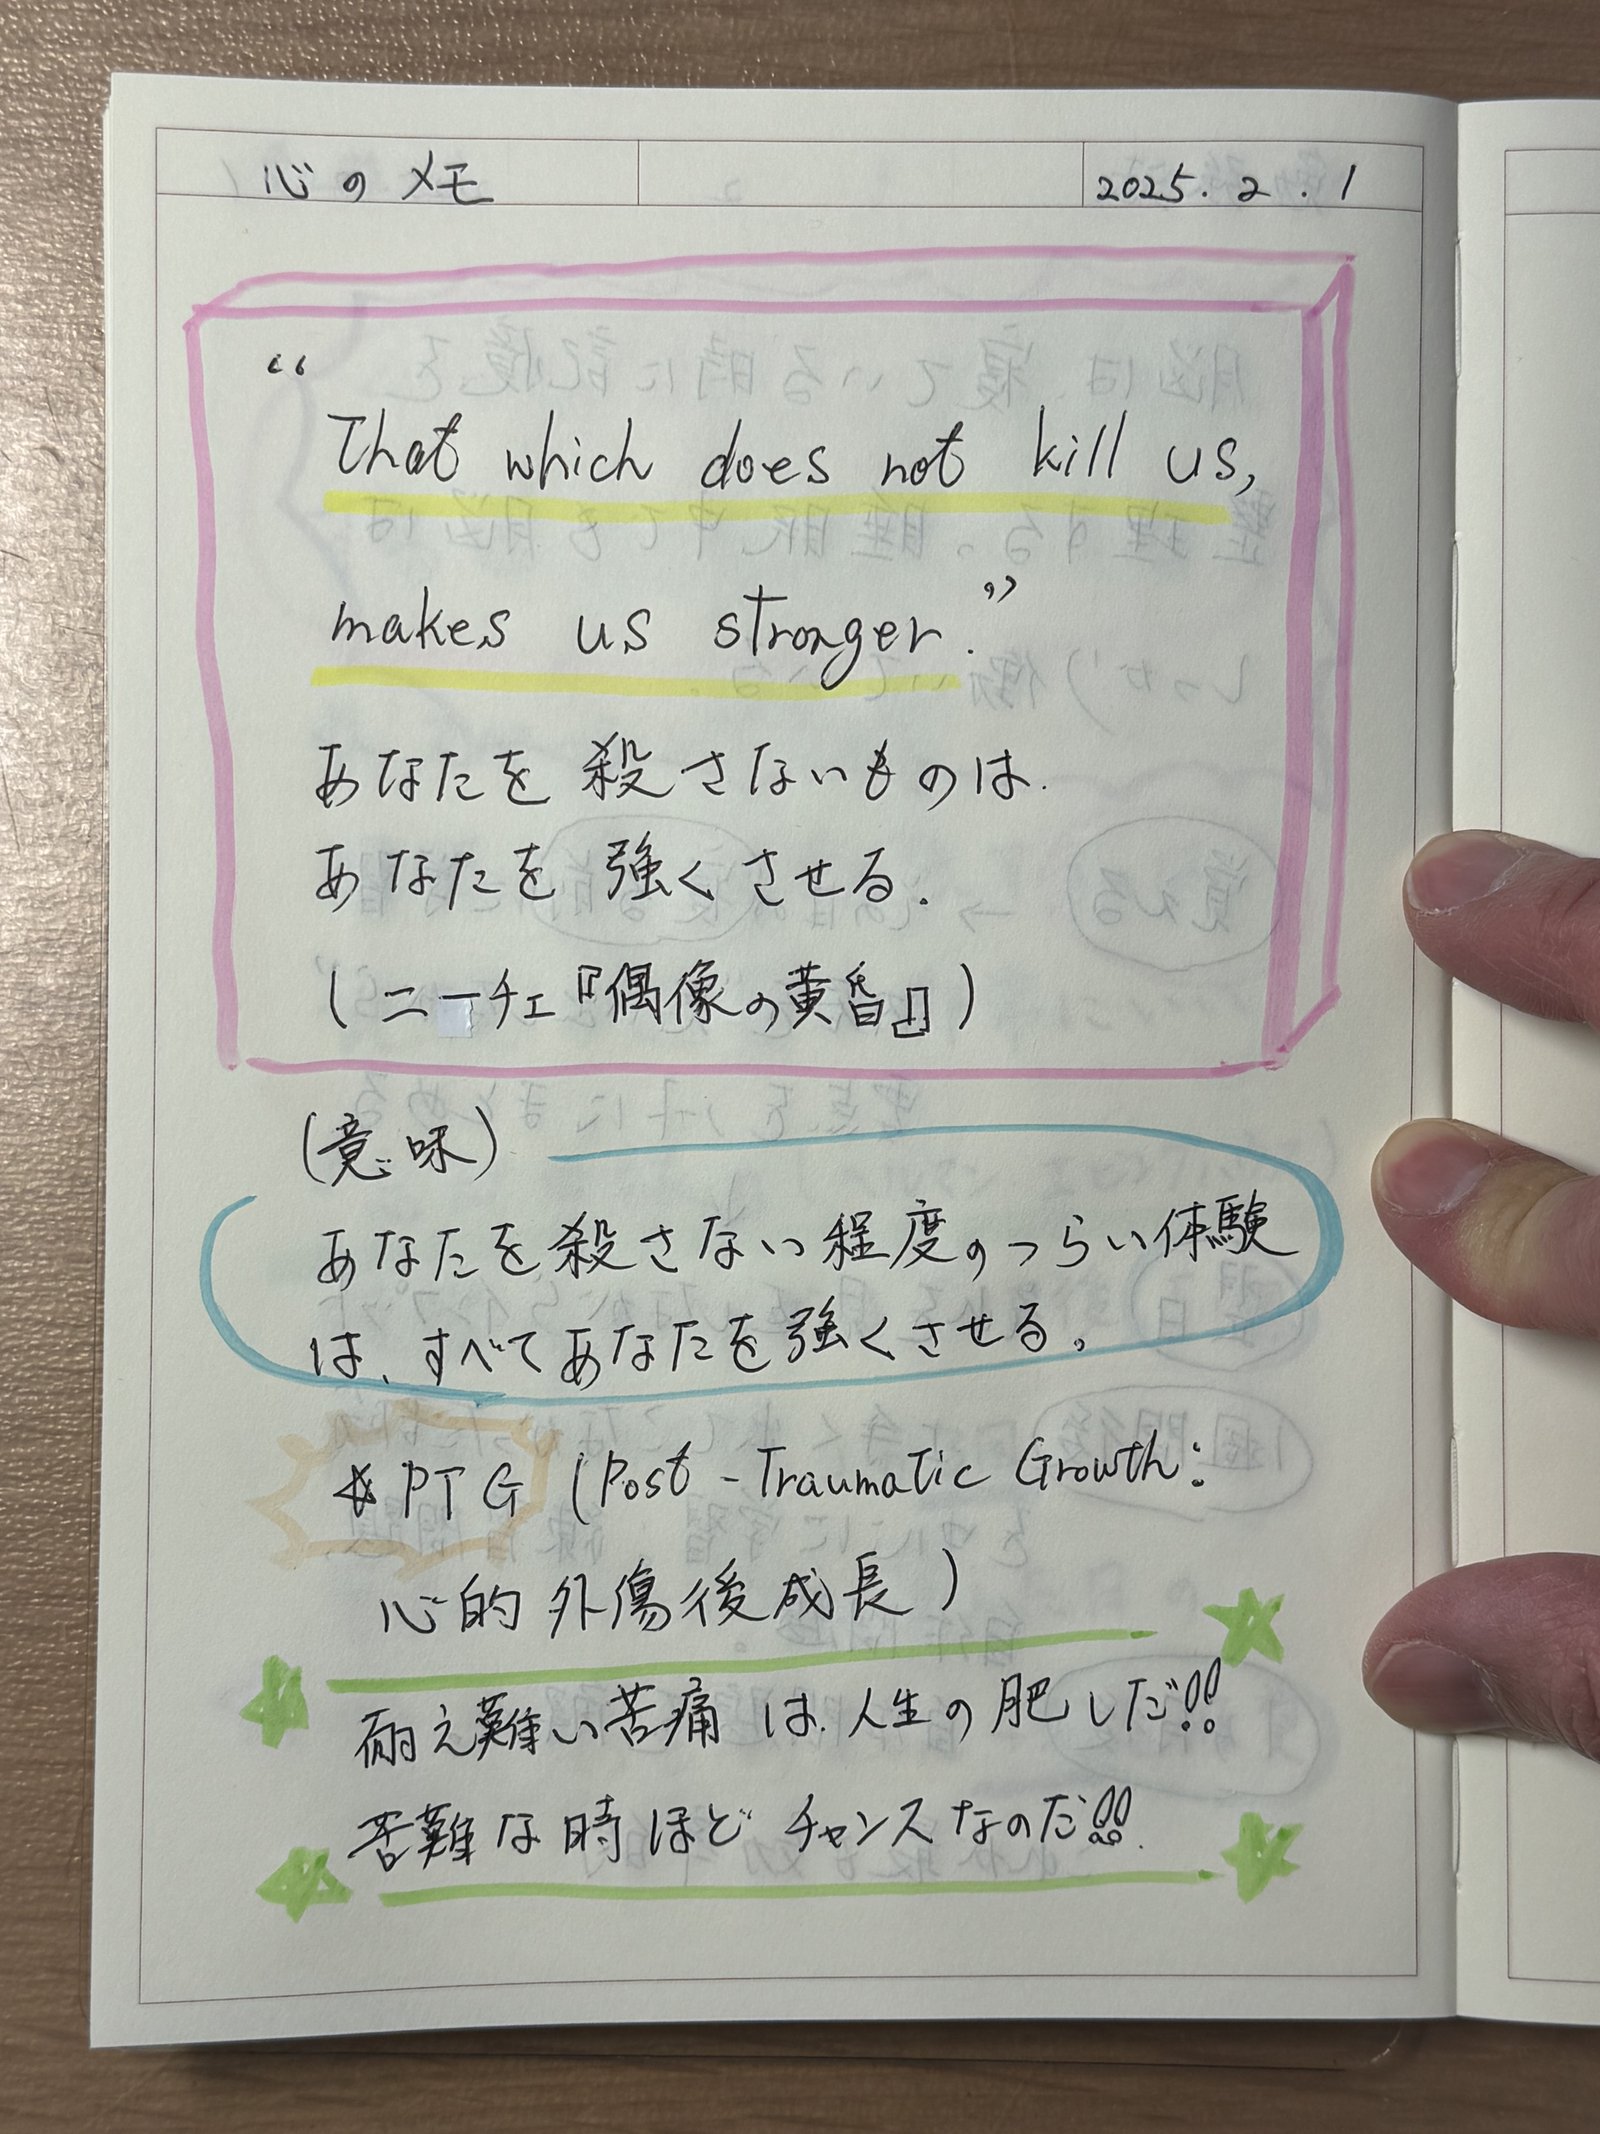 心のメモ
2025.2.1
“
That which does not kill us,
makes us stronger.”
あなたを殺さないものは.
あなたを強くさせる.
(ニーチェ『偶像の黄昏』)
(意味)
あなたを殺さない程度のつらい体験
は、すべてあなたを強くさせる。
*PTG (Post-Traumatic Growth:
心的外傷後成長)
耐え難い苦痛は.人生の肥しだ!!
苦難な時ほどチャンスなのだ!!